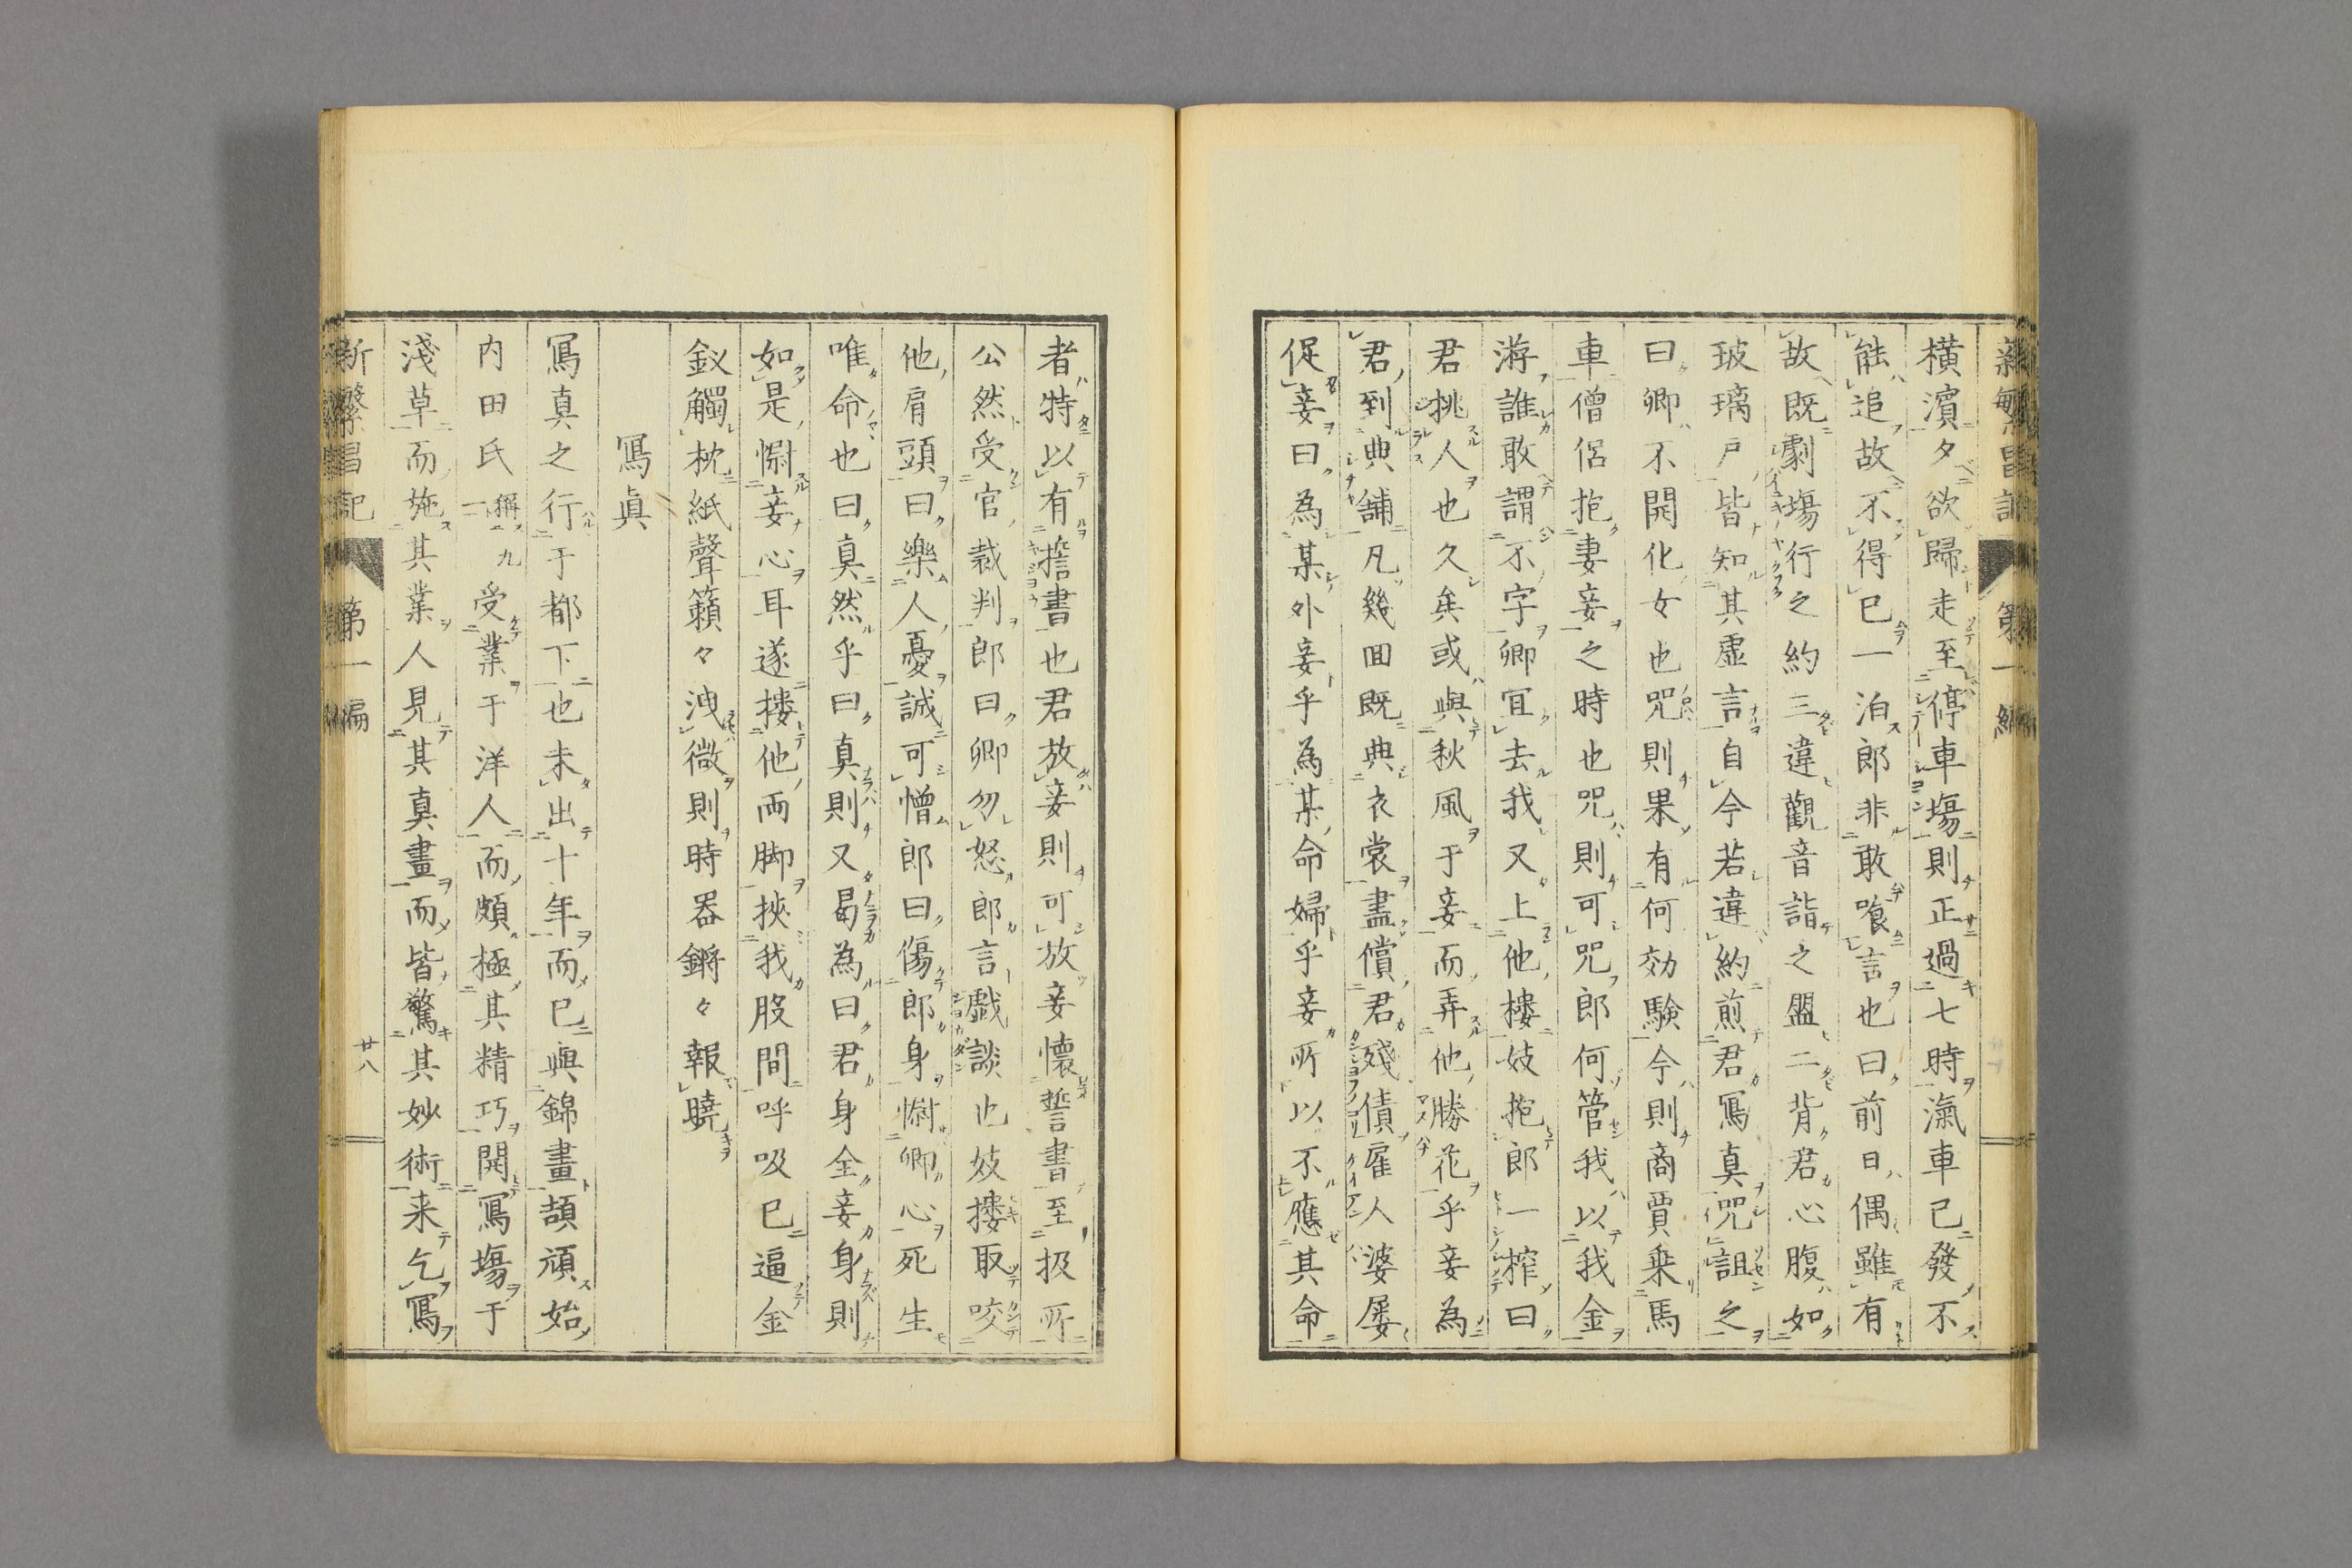 横濱夕欲歸走至停車塲則正過七時滊車已發不
能追故不得已一泊郎非敢喰言也曰前日偶雖有
故既劇塲行之約三違觀音詣之盟二背君心腹如
玻璃戸皆知其虚言自今若違約煎君寫真咒詛之
曰卿不開化女也咒則果有何効驗今則商賈乗馬
車僧侶抱妻妾之時也咒則可咒郎何管我以我金
游誰敢謂不字卿宜去我又上他樓妓抱郎一搾曰
君挑人也久矣或與秋風于妾而弄他勝花乎妾為
君到典舗凡幾回既典衣裳盡償君殘債雇人婆屡
促妾曰為某外妾乎為某命婦乎妾所以不應其命
者特以有誓書也君放妾則可放妾懐誓書至扱所
公然受官裁判郎曰卿勿怒郎言戯談也妓摟取咬
他肩頭曰樂人憂誠可憎郎曰傷郎身慰卿心死生
唯命也曰真然乎曰真則又曷為曰君身全妾身則
如是慰妾心耳遂摟他両脚挾我股間呼吸已逼金
釵觸枕紙聲籟々洩微則時器鏘々報曉
寫眞
寫真之行于都下也未出十年而已與錦畫頡頏始
内田氏稱九受業于洋人而頗極其精巧開寫塲于
淺草而施其業人見其真畫而皆驚其妙術来乞寫
新繁昌記 第一編 廿八